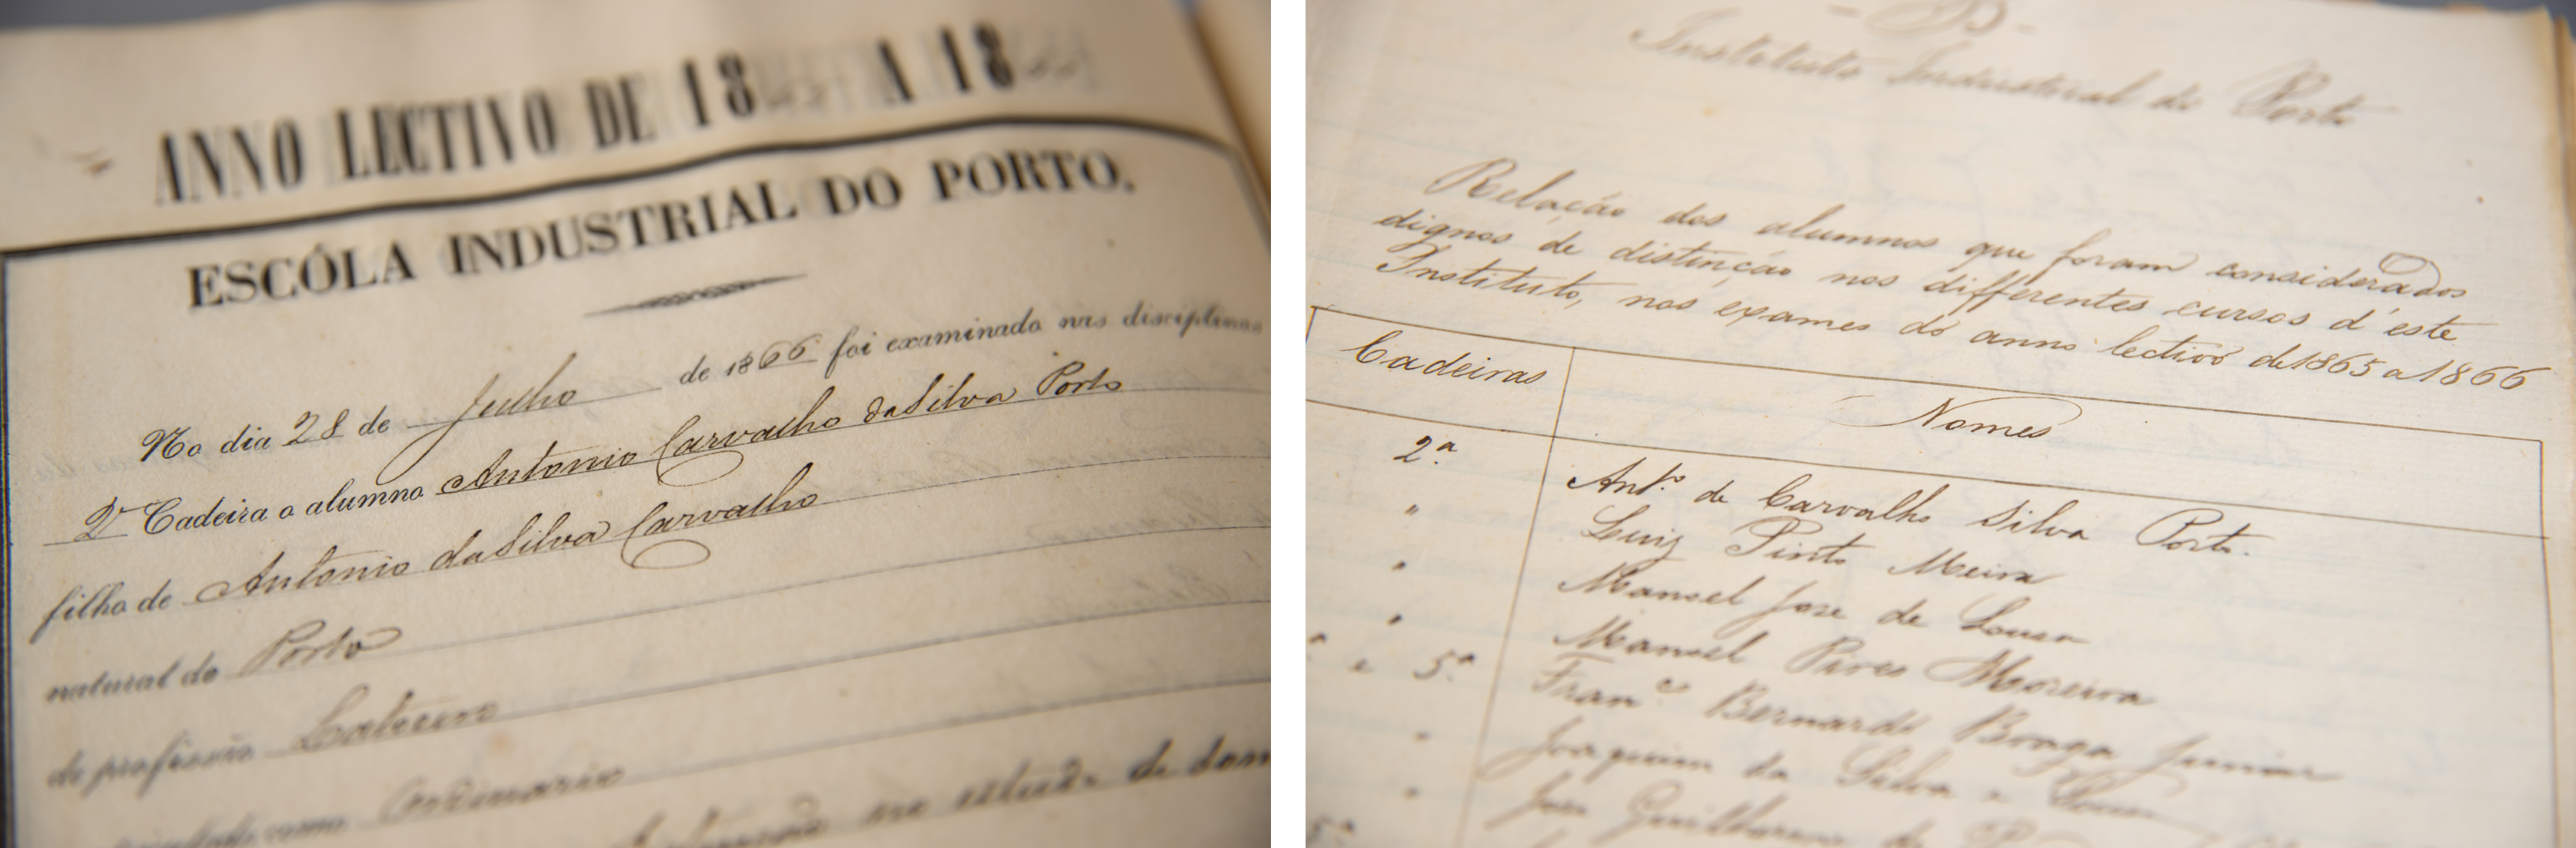 ANNO LECTIVO DE 18 A 18
ESCÓLA INDUSTRIAL DO PORTO.
No dia 28 de Julho de 1866 foi examinado nas disciplinas
2ª Cadeira o alumno Antonio Carvalho da Silva Porto
filho de Antonio da Silva Carvalho
natural do Porto
de profissão
como Ordinario
no estudo de
Instituto Industrial do Porto
Relação dos alumnos que foram considerados
dignos de distincção nos differentes cursos d'este
Instituto, nos exames do anno lectivo de 1865 a 1866
Cadeiras Nomes
2.ª Ant.º de Carvalho Silva Porto.
" Luiz Pinto Meira
" Manoel Jose de Sousa
" Manoel Pires Moreira
ª e 5.ª Fran.co Bernardo Braga Junior
" Joaquim da Silva e Sousa
" João Guilherme
5.ª